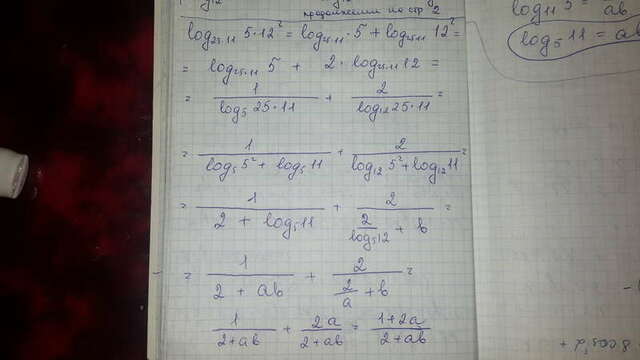 продолжении на стр 2
log₂₅.₁₁ 5·12² = log₂₅.₁₁·5 + log₂₅.₁₁ 12² =
= log₂₅.₁₁ 5 + 2·log₂₅.₁₁ 12 =
= 1/(log₅ 25·11) + 2/(log₁₂ 25·11) =
= 1/(log₅ 5² + log₅ 11) + 2/(log₁₂ 5² + log₁₂ 11) =
= 1/(2 + log₅ 11) + 2/(2/(log₅ 12) + b) =
= 1/(2 + ab) + 2/(2/a + b) =
1/(2+ab) + 2a/(2+ab) = (1+2a)/(2+ab)
log₁₁ 5 = ab
log₅ 11 = ab